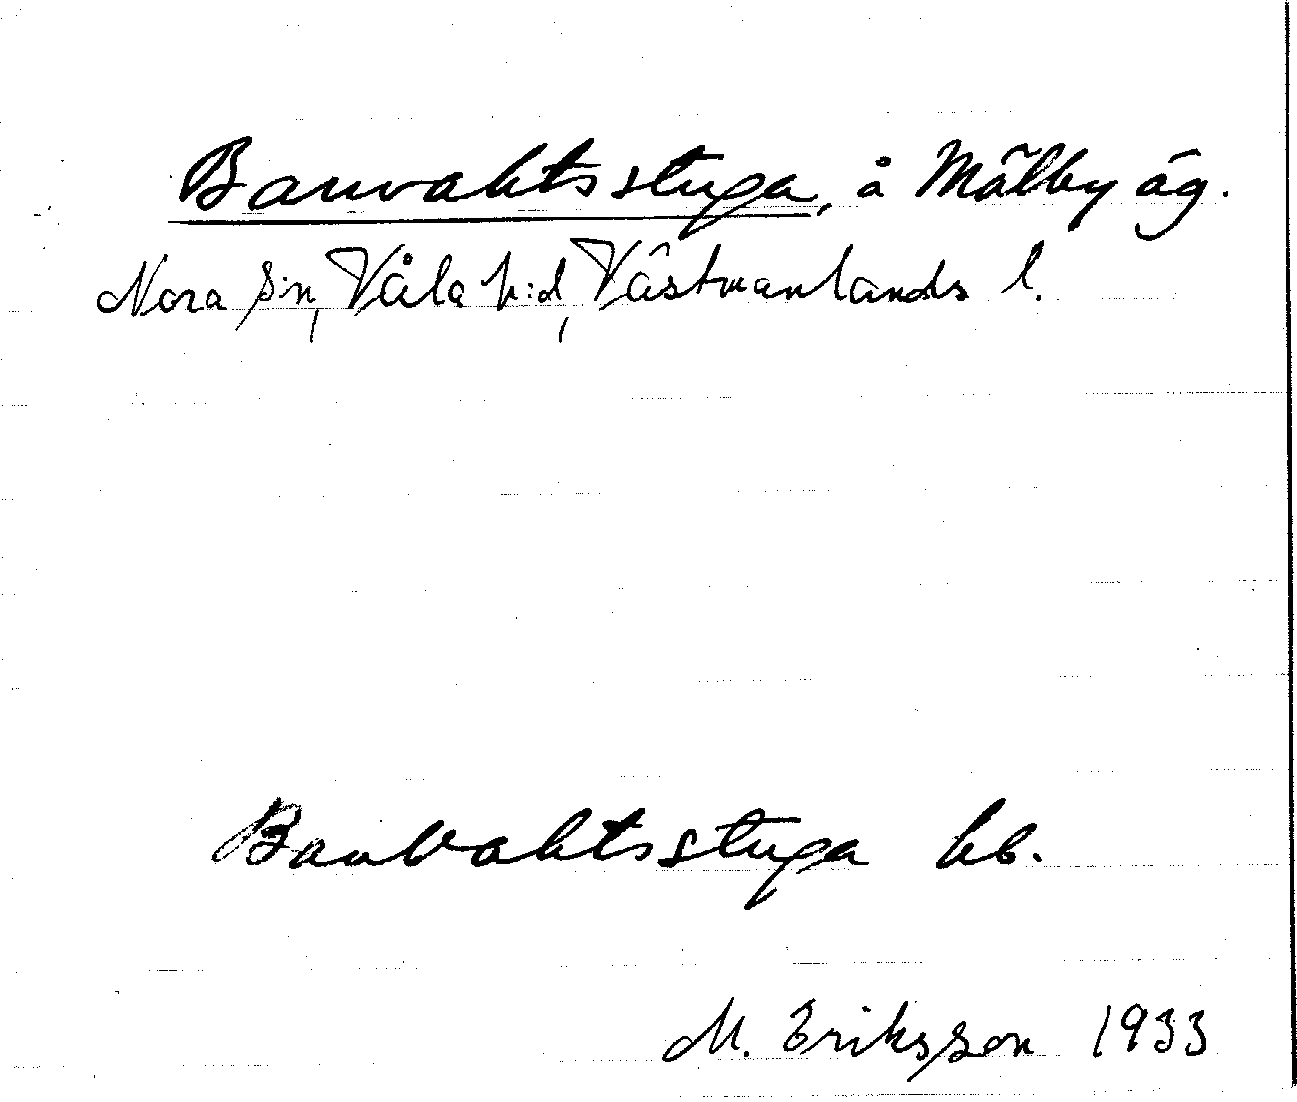 Banvaktsstuga, å Mälby äg.
Nora s:n, Våla h:d, Västmanlands l.
Banvaktsstuga hb.
M. Eriksson 1933